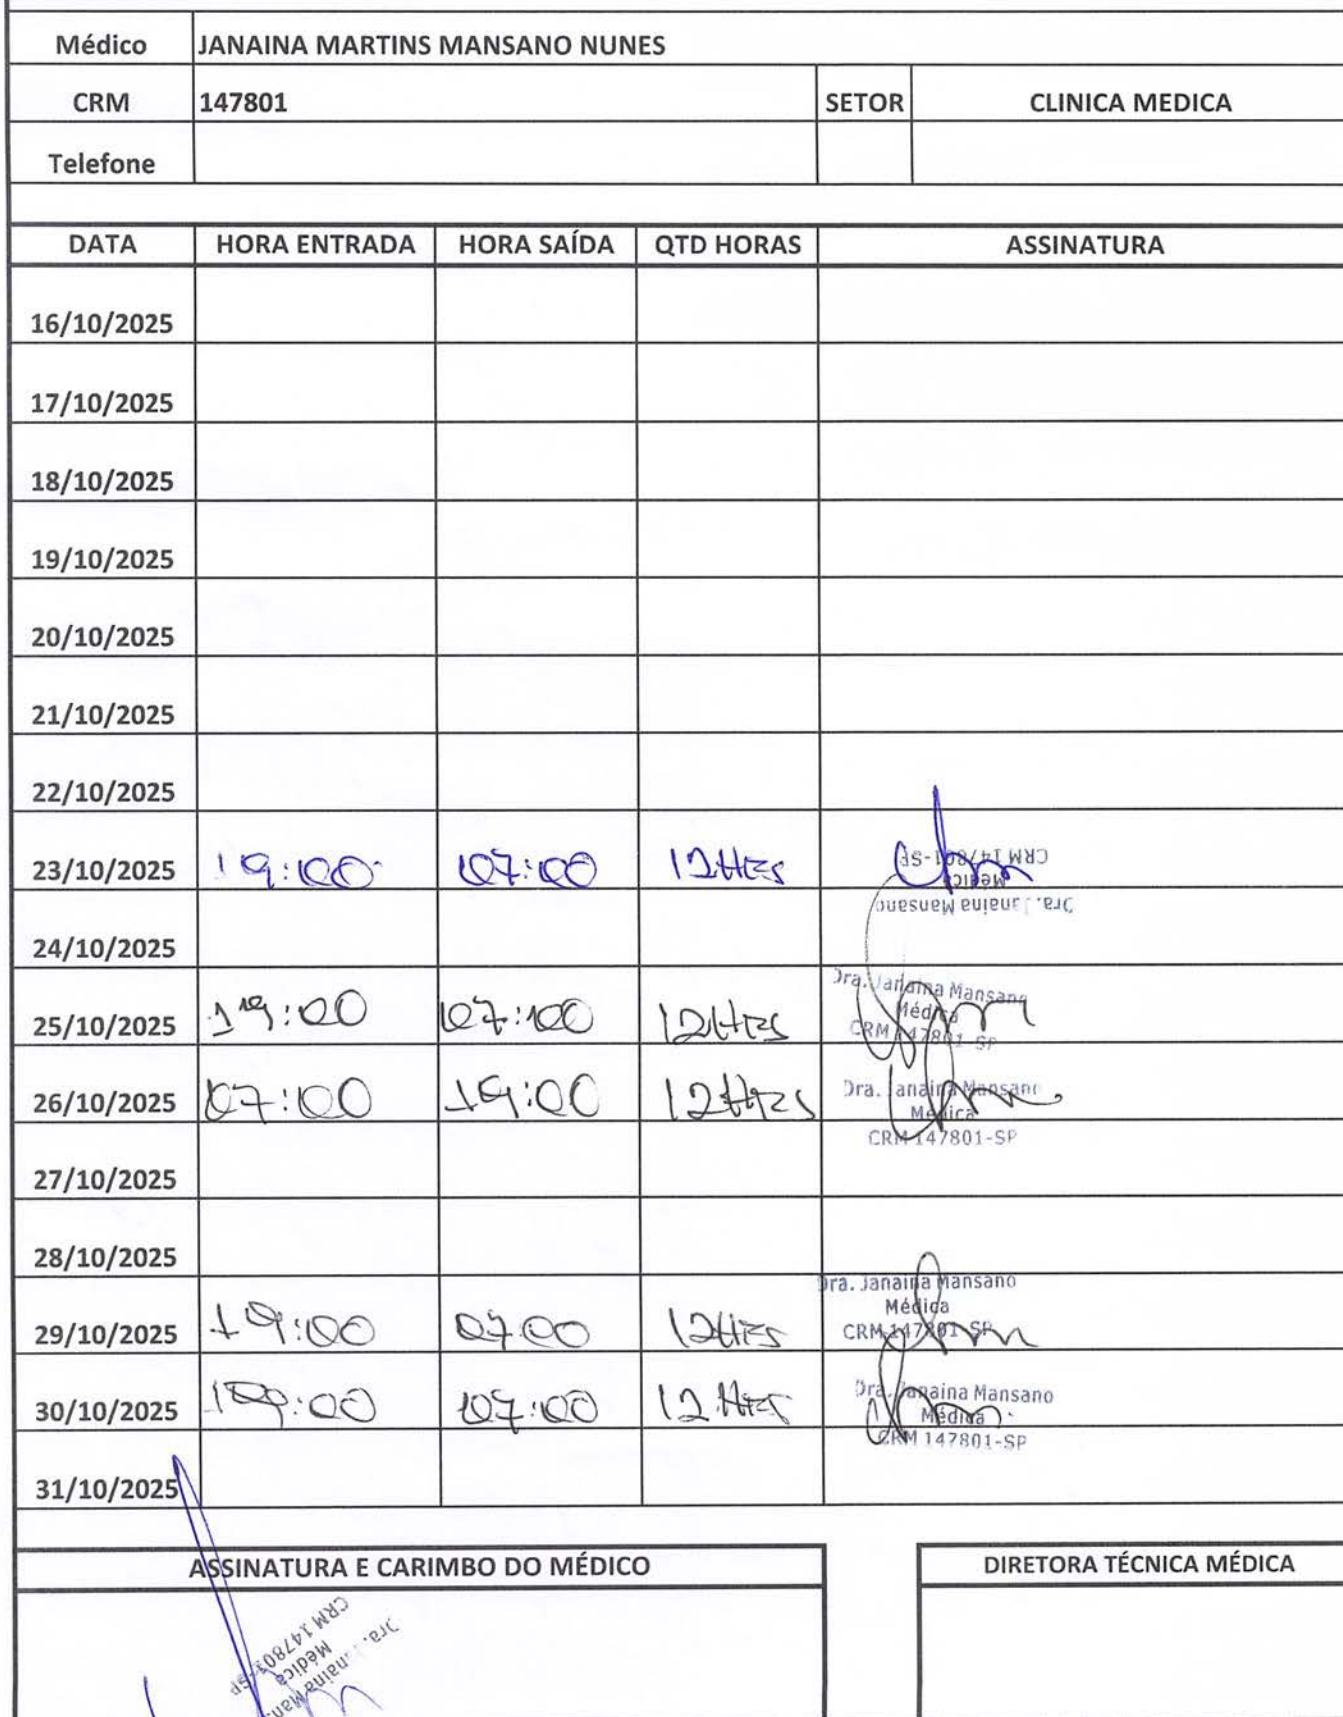 Médico JANAINA MARTINS MANSANO NUNES
CRM 147801 SETOR CLINICA MEDICA
Telefone
DATA HORA ENTRADA HORA SAÍDA QTD HORAS ASSINATURA
16/10/2025
17/10/2025
18/10/2025
19/10/2025
20/10/2025
21/10/2025
22/10/2025
23/10/2025 19:00 07:00 12HRS
Dra. Janaina Mansano
Médica
CRM 147801-SP
24/10/2025
25/10/2025 19:00 07:00 12HRS
Dra. Janaina Mansano
Médica
CRM 147801-SP
26/10/2025 07:00 19:00 12HRS
Dra. Janaina Mansano
Médica
CRM 147801-SP
27/10/2025
28/10/2025
29/10/2025 19:00 07:00 12HRS
Dra. Janaina Mansano
Médica
CRM 147801-SP
30/10/2025 19:00 07:00 12HRS
Dra. Janaina Mansano
Médica
CRM 147801-SP
31/10/2025
ASSINATURA E CARIMBO DO MÉDICO DIRETORA TÉCNICA MÉDICA
Dra. Janaina Man
Médica
CRM 147801-SP